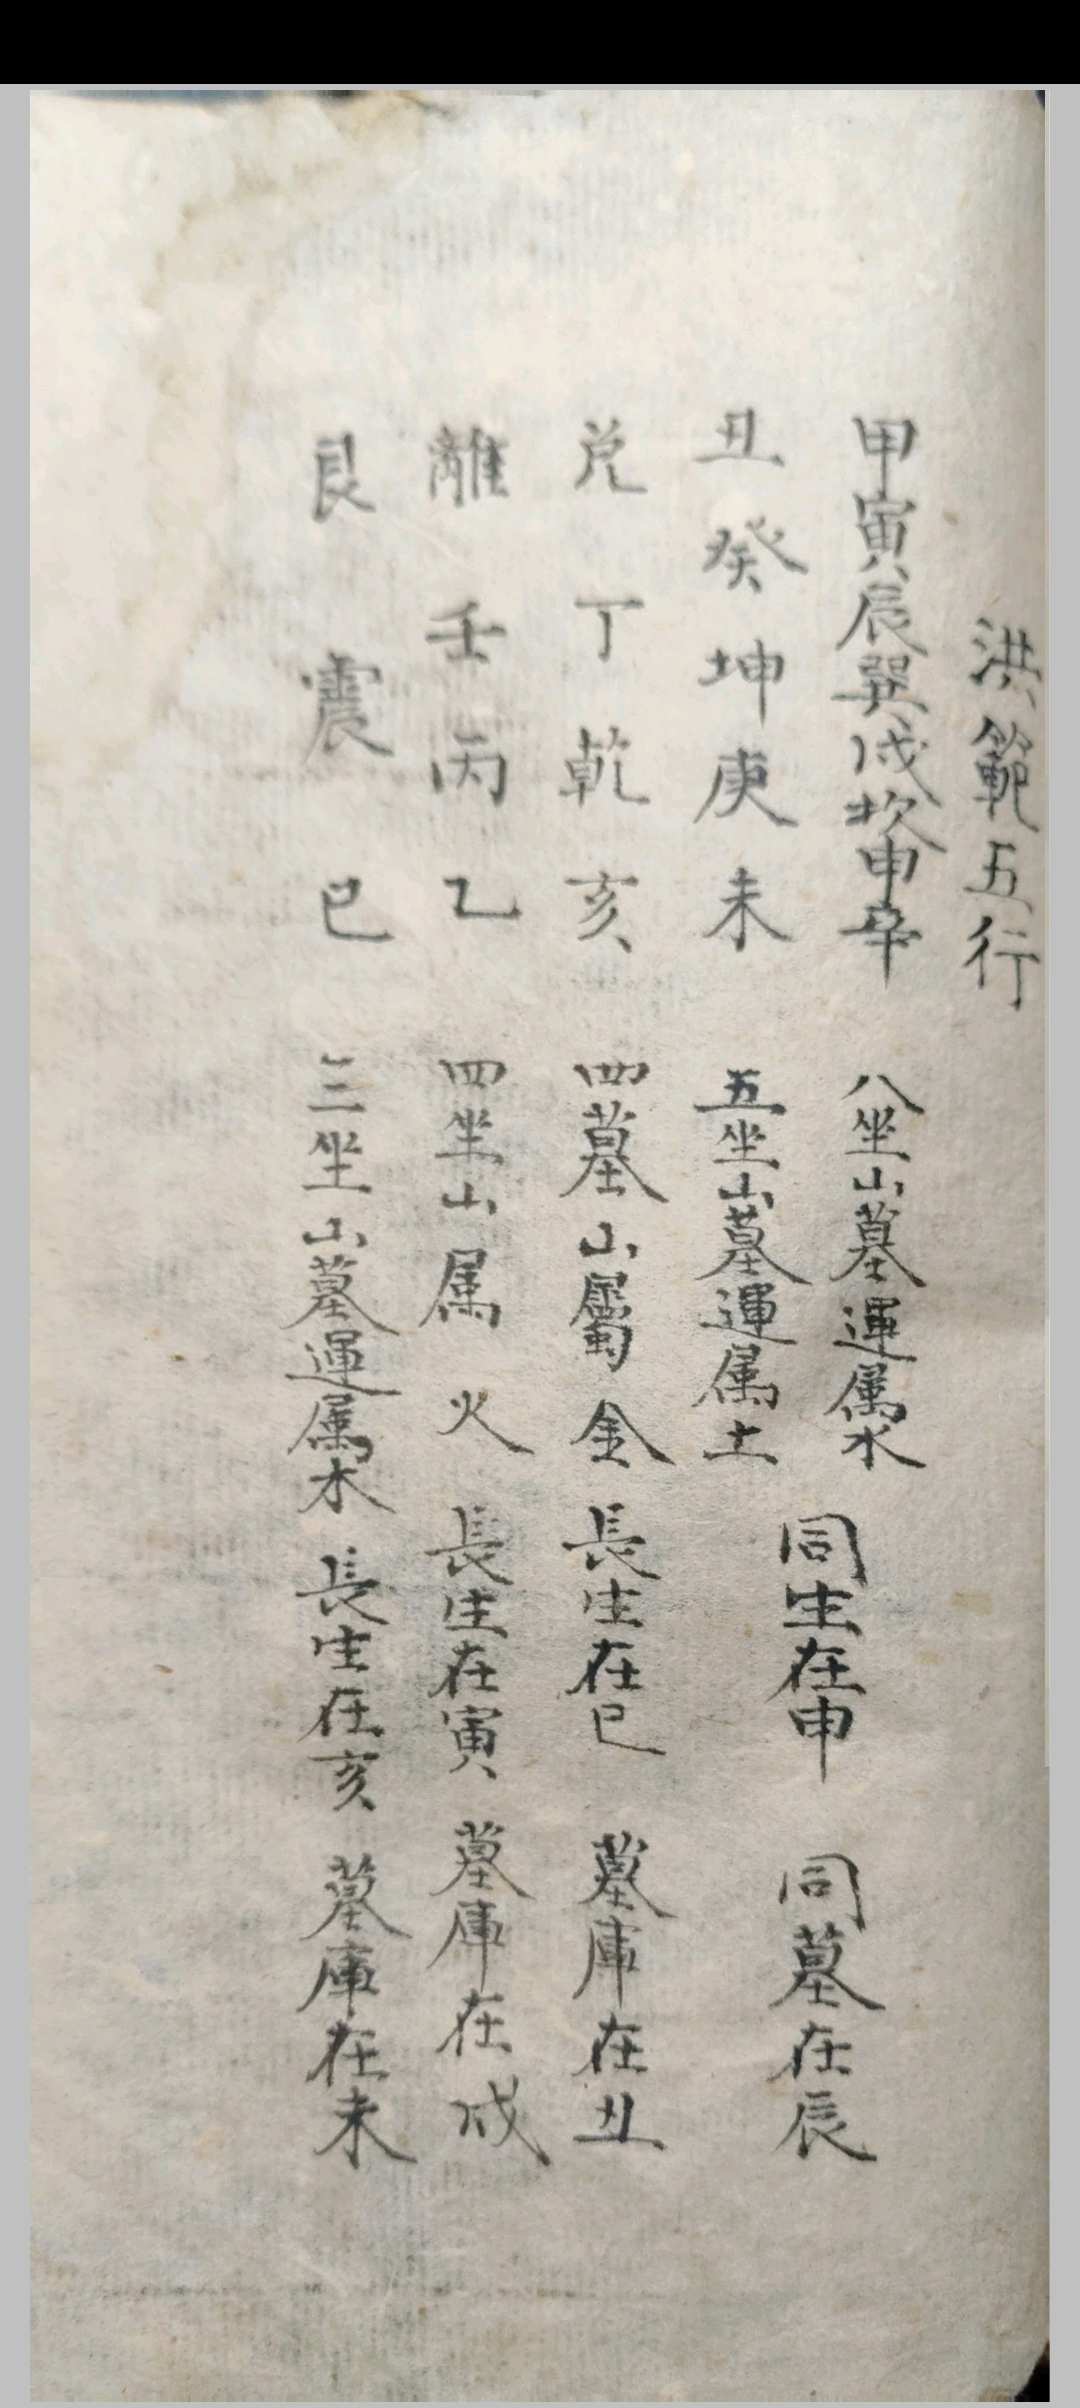 洪範五行
甲寅辰巽戌坎申辛 八坐山墓運属水
丑癸坤庚未 五坐山墓運属土
同生在申 同墓在辰
兑丁乾亥 四墓山屬金 長生在巳 墓庫在丑
離壬丙乙 四坐山属火 長生在寅 墓庫在戌
艮震巳 三坐山墓運属木 長生在亥 墓庫在未